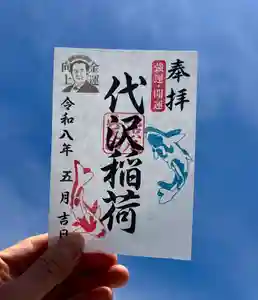 奉拝
強運・開運
代沢稲荷
金運
向上
令和八年 五月吉日